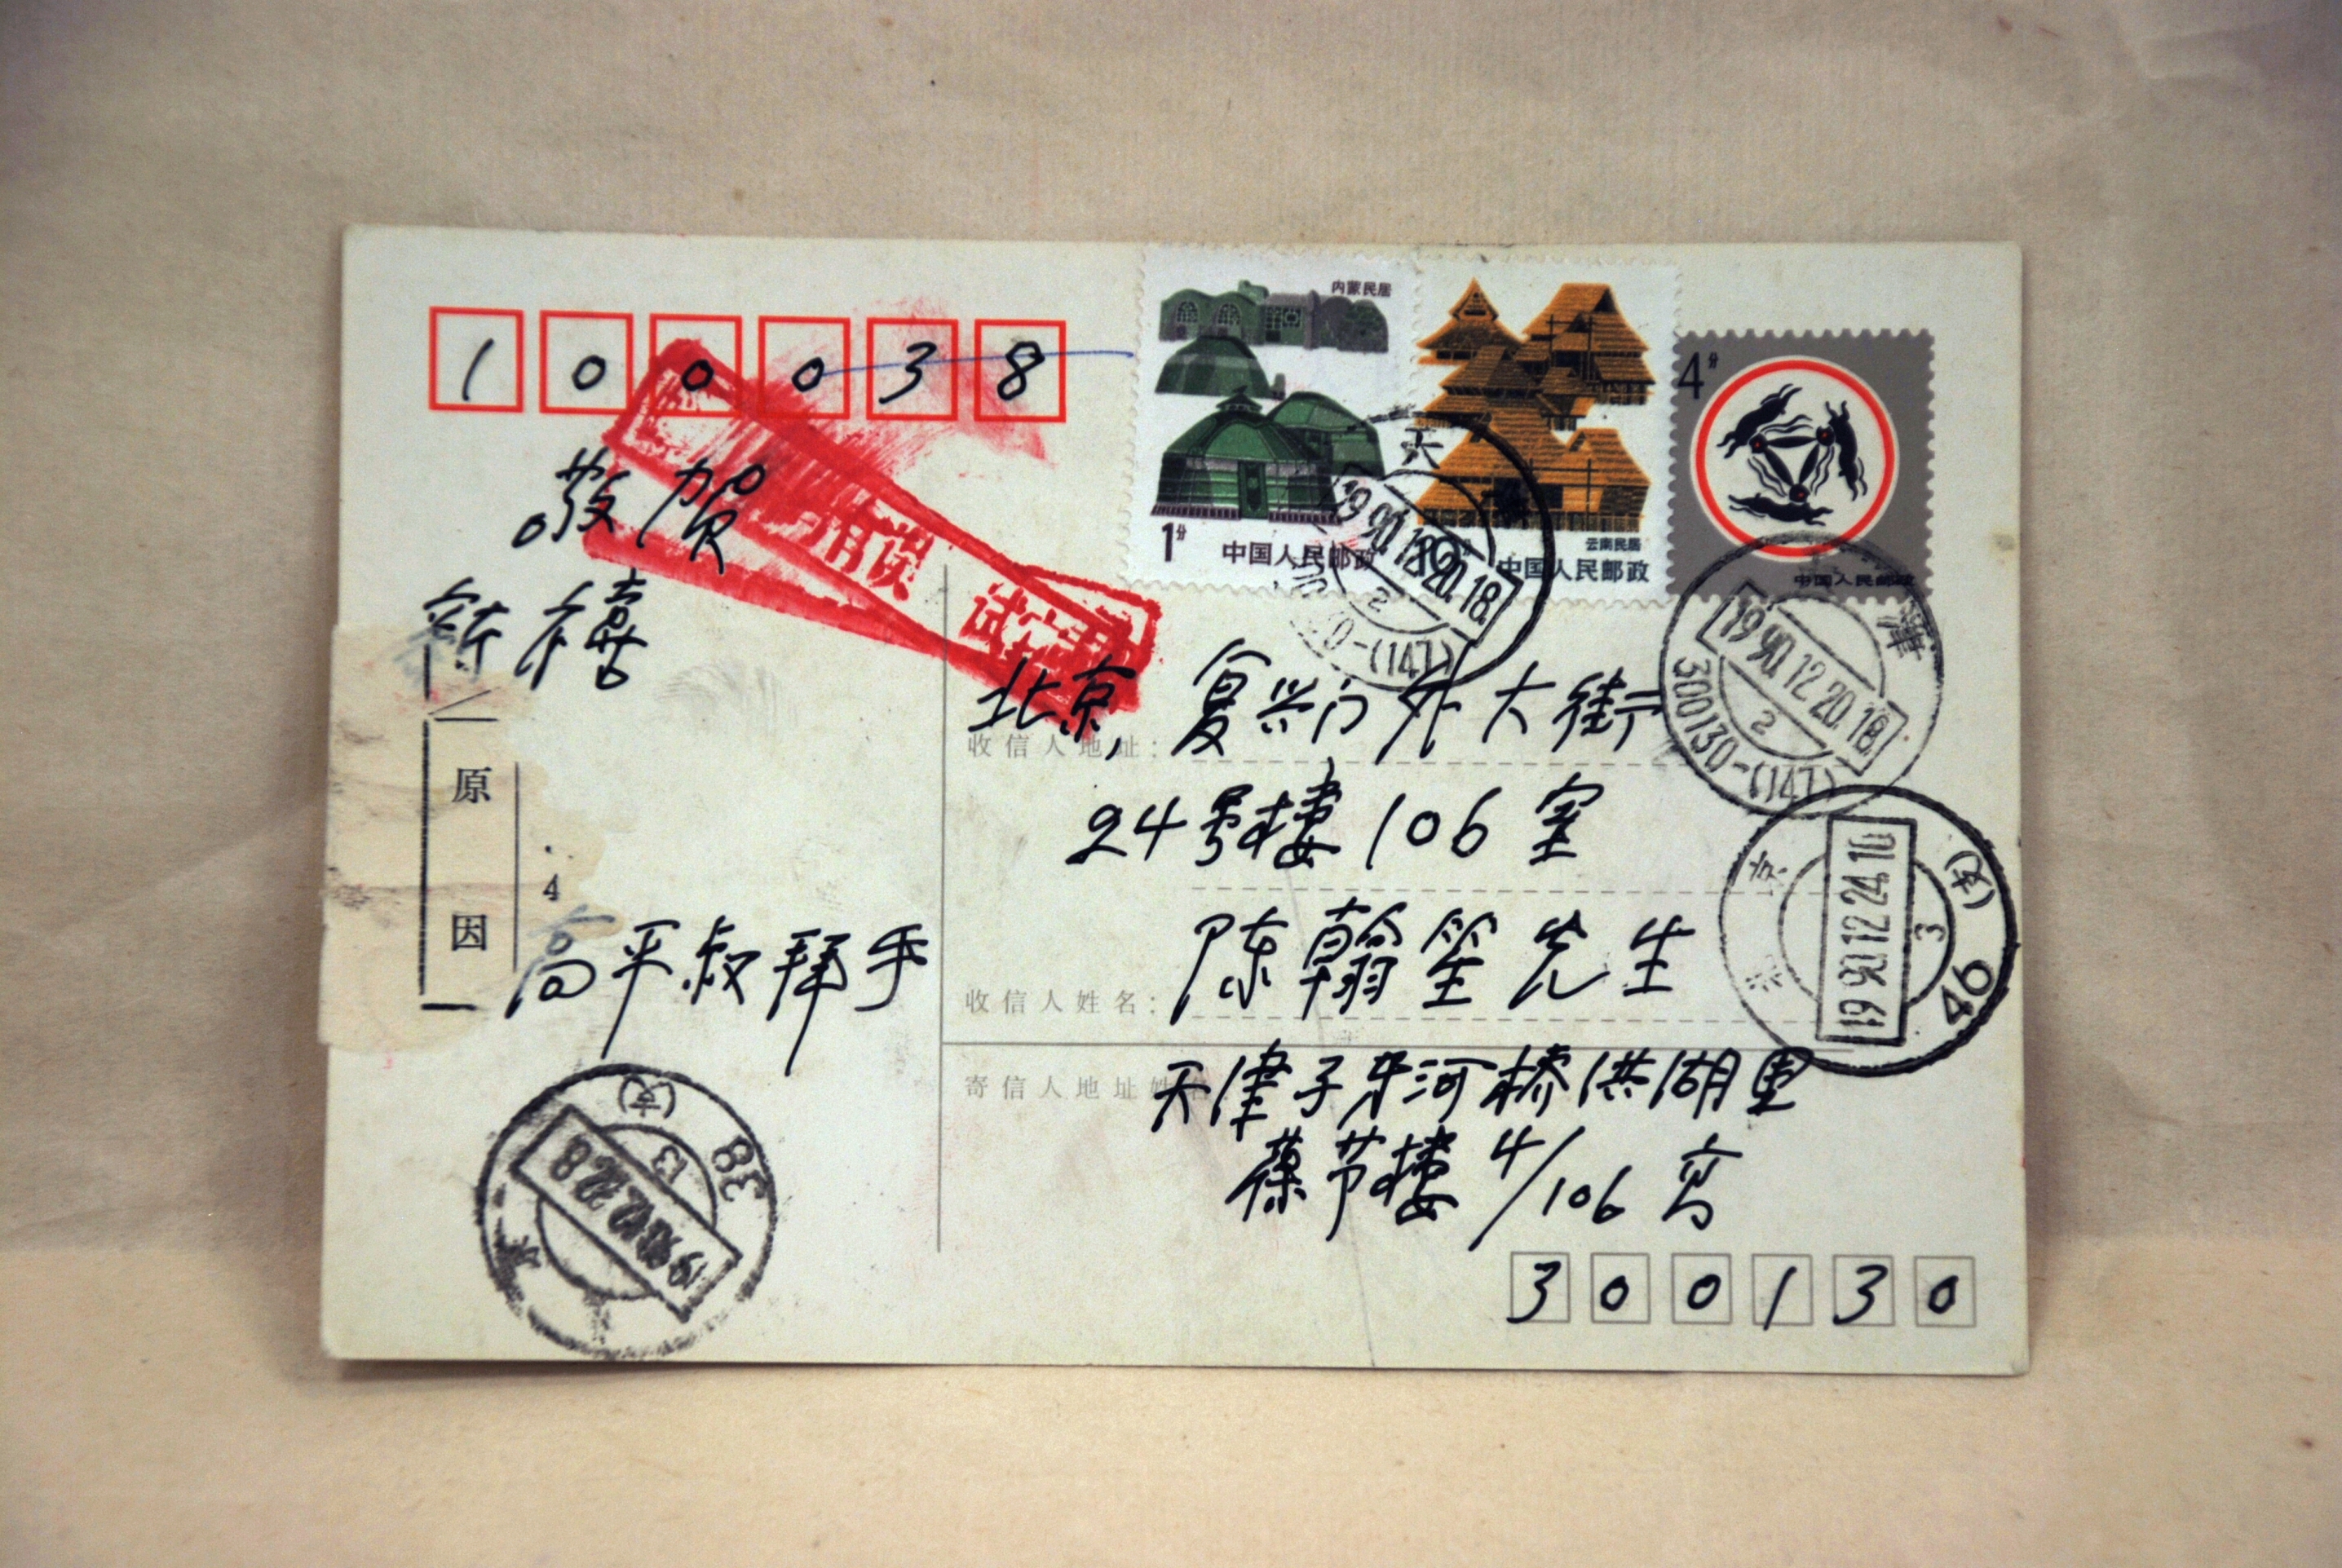 100038
内蒙民居
1分
中国人民邮政
云南民居
中国人民邮政
4分
中国人民邮政
敬贺
新禧
有误 试
天
1990.12.20.18
2
(147)
津
1990.12.20.18
2
300130-(147)
北京,复兴门外大街
收信人地址:
24号楼106室
陈翰笙先生
收信人姓名:
原因
4
高平叔拜手
京
1990.12.24.10
3
46
天津子牙河桥洪湖里
寄信人地址姓
葆节楼4/106号
38
13
1990.12.22.8
300130